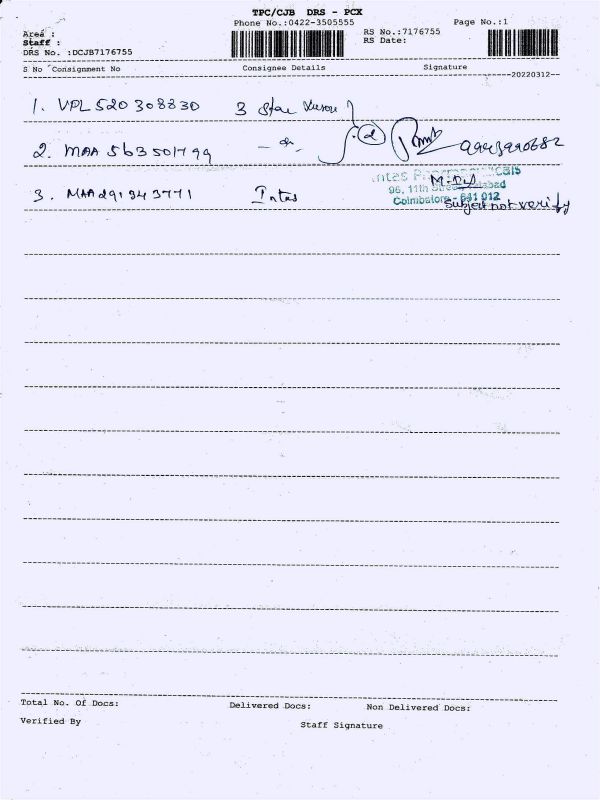 TPC/CJB DRS - PCX
Phone No.:0422-3505555
Page No.:1
Area :
Staff :
DRS No. :DCJB7176755
RS No.:7176755
RS Date:
S No Consignment No Consignee Details Signature
20220312
1. VPL 520 308830 3 Star
2. MAA 563501799 - do -
3. MAA 291943771 Intas
96, 11th Street
Coimbatore - 641 012
Subject not verify
Total No. Of Docs: Delivered Docs: Non Delivered Docs:
Verified By Staff Signature